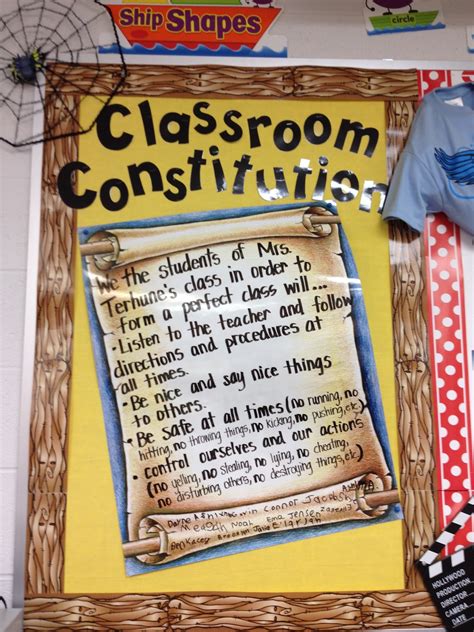 Ship Shapes
circle
Classroom
Constitution
We the students of Mrs.
Terhune's class in order to
form a perfect class will...
• Listen to the teacher and follow
directions and procedures at
all times.
• Be nice and say nice things
to others.
• Be safe at all times (no running, no
hitting, no throwing things, no kicking, no pushing, etc.)
• control ourselves and our actions
(no yelling, no stealing, no lying, no cheating,
no disturbing others, no destroying things, etc.)
Connor Jacob
Meagan Noah Ema Jensen
Kacey
HOLLYWOOD
PRODUCTION
DIRECTOR
CAMERA
DATE